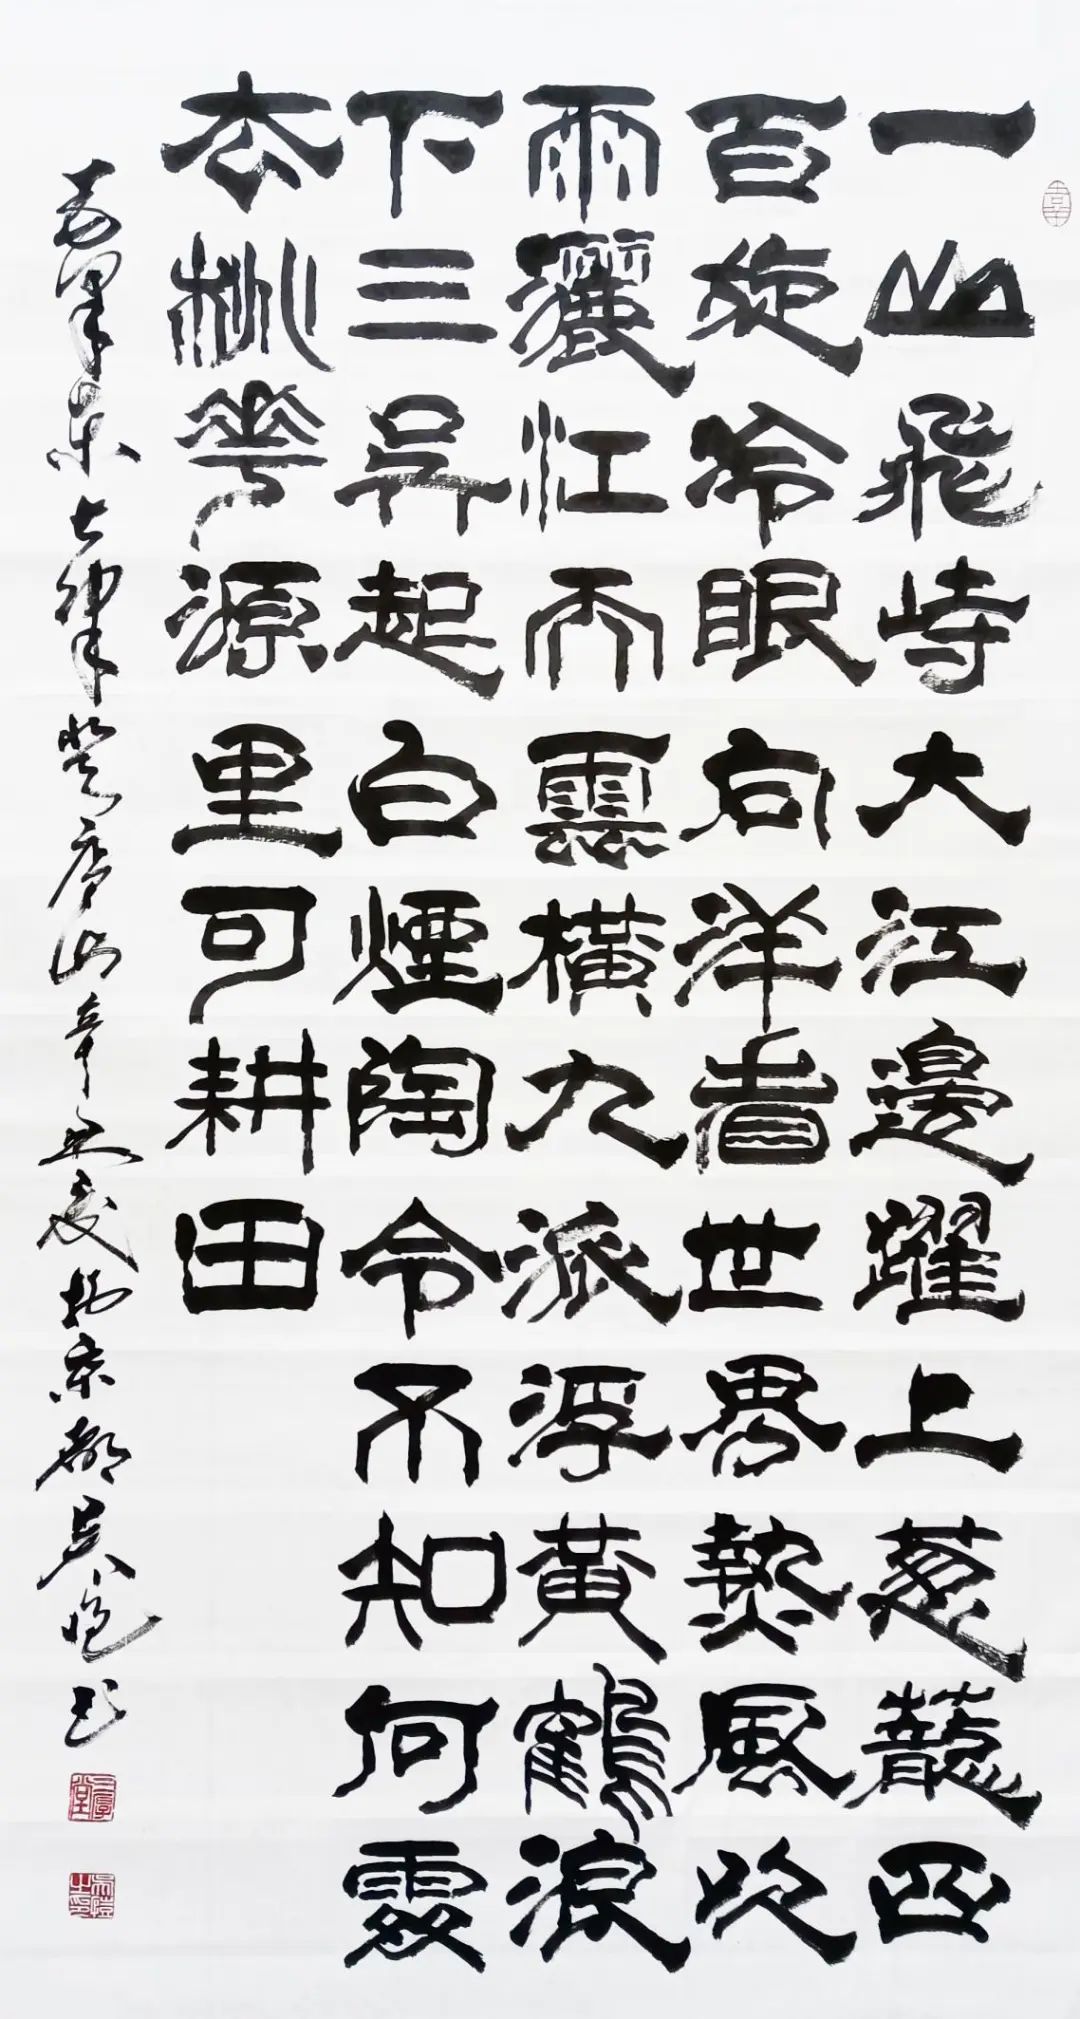 一山飛峙大江邊躍上葱蘢四
百旋冷眼向洋看世界熱風吹
雨灑江天雲橫九派浮黃鶴浪
下三吳起白煙陶令不知何處
去桃花源里可耕田
毛澤東七律登廬山辛丑夏於京都吳愷书
吳愷之印